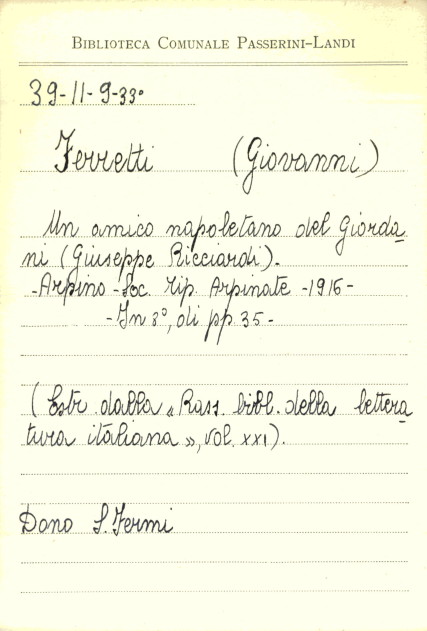 BIBLIOTECA COMUNALE PASSERINI-LANDI
39-11-9-33°
Ferretti (Giovanni)
Un amico napoletano del Giorda
ni (Giuseppe Ricciardi).
-Arpino-Soc. tip. Arpinate -1915-
-In 8°, di pp. 35-
(Estr. dalla « Rass. bibl. della lettera
tura italiana », vol. XXI).
Dono S. Fermi